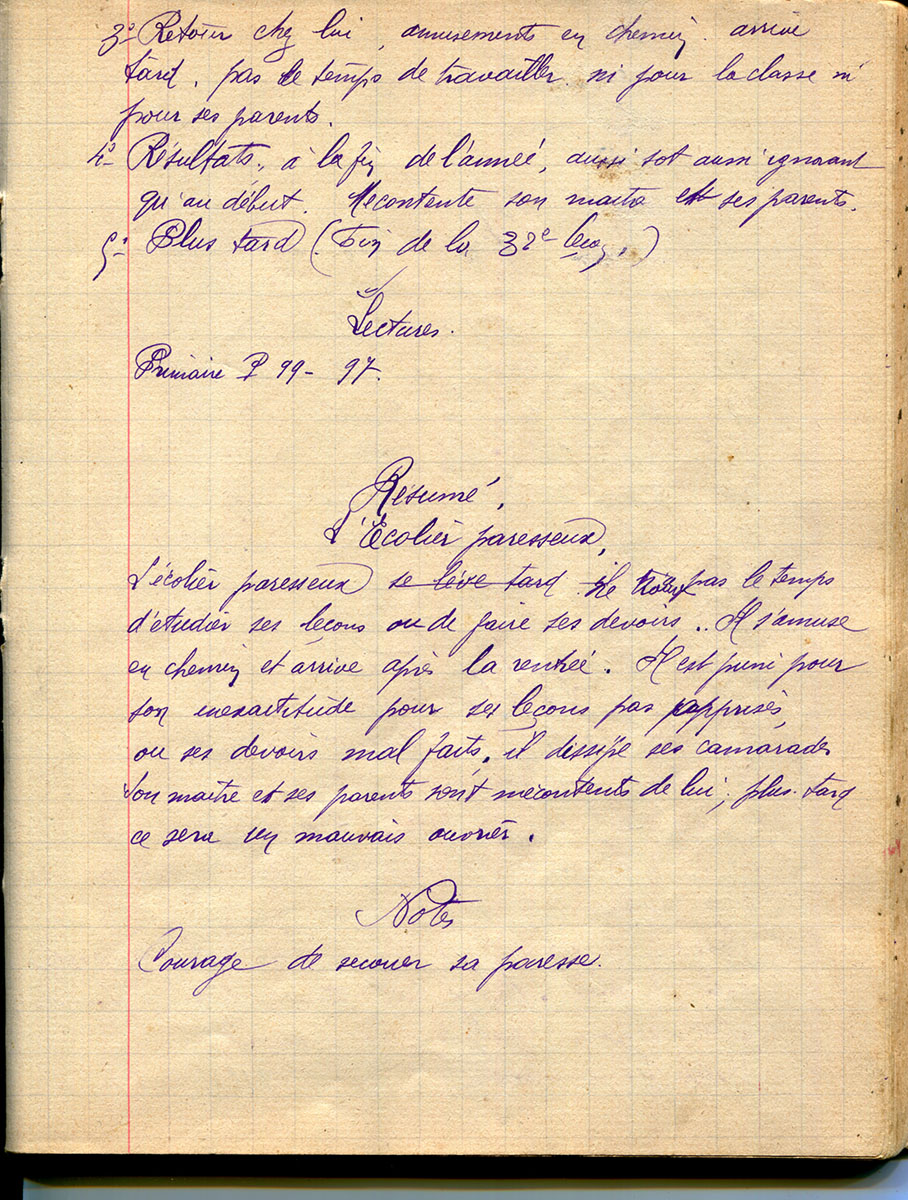 3º Retour chez lui, amusements en chemin. arrive
tard, pas le temps de travailler ni pour la classe ni
pour ses parents.
4º Résultats, à la fin de l'année, aussi sot aussi ignorant
qu'au début. Mécontente son maître et ses parents.
5º Plus tard (Fin de la 32e leçon.)
Lectures.
Primaire P 99 - 97.
Résumé.
L'Écolier paresseux.
L'écolier paresseux se lève tard. Il pas le temps
d'étudier ses leçons ou de faire ses devoirs.. Il s'amuse
en chemin et arrive après la rentrée. Il est puni pour
son inexactitude pour ses leçons pas apprises,
ou ses devoirs mal faits, il dissipe ses camarades
Son maître et ses parents sont mécontents de lui, plus tard
ce sera un mauvais ouvrier.
Notes
Courage de secouer sa paresse.